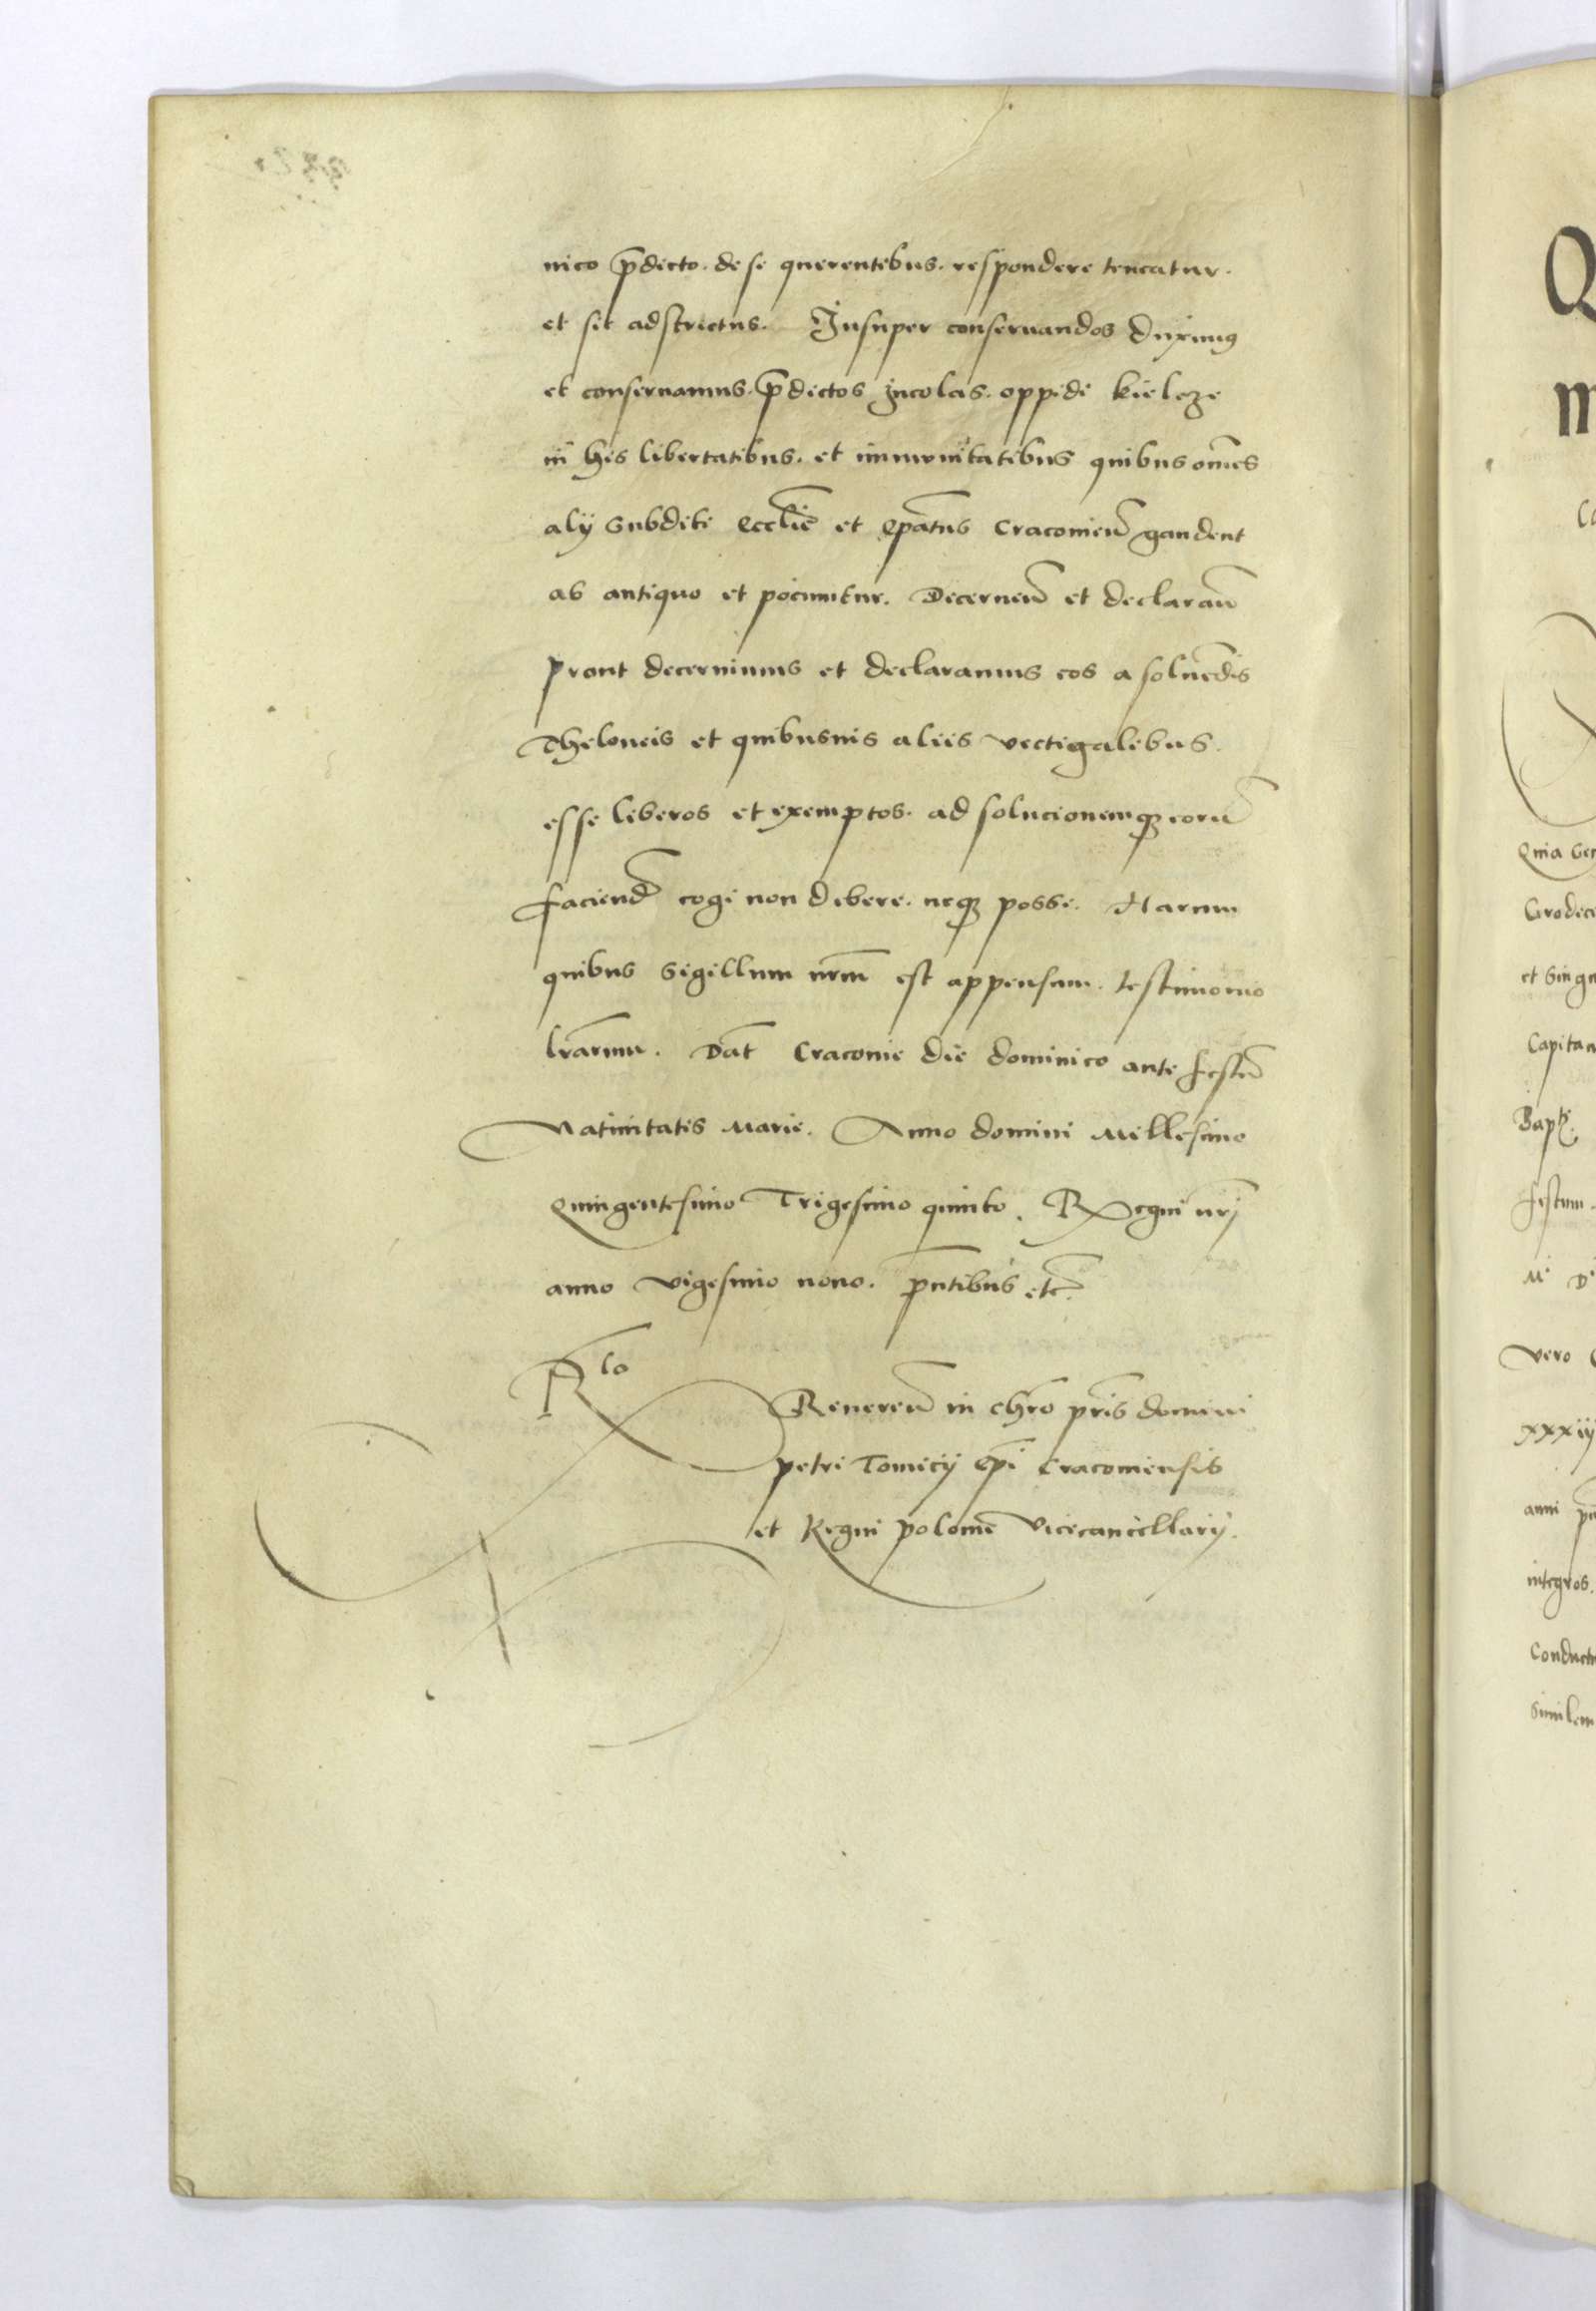 nico p̄dicto. de se querentibus. respondere teneatur.
et sit adstrictus. Insuper conseruandos duximꝰ
et conseruamus. p̄dictos incolas. oppidi kielcze
in his libertatibus. et immunitatibus quibus om̄es
alij subditi eccl̄ie et ep̄atus Cracouien̄ gaudent
ab antiquo et pociuntur. Decernen̄ et declaran̄
prout decernimus et declaramus eos a soluēdis
Theloneis et quibusuis aliis vectigalibus.
esse liberos et exemptos. ad solucionemqꝫ eorū
faciend̄ cogi non debere. neqꝫ posse. Harum
quibus sigillum nr̄m est appensum. testimonio
lr̄arum. Dat̄ Cracouie die dominico ante festū
Natiuitatis Marie. Anno domini Millesimo
Quingentesimo Trigesimo quinto. Regni nr̄j
anno vigesimo nono. p̄ntibus etc̄.
Rlo
Reueren̄ in chr̄o pr̄is domini
petri Tomicij ep̄i Cracouiensis
et Regni polonie̅ vicecancellarij.
Quia
Grodec
et sing
Capitan
Bapt.
festum
Mº Dº
vero
xxxiij
anni
integros.
Conduct
similem